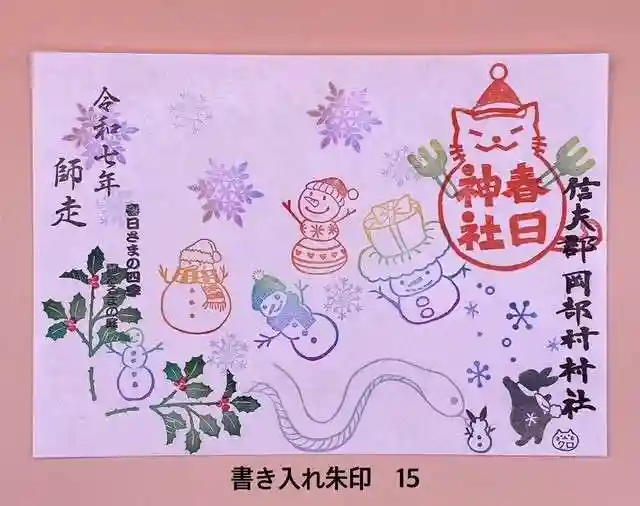 春日
神社
信夫郡岡部村村社
令和七年
師走
春日さまの四季
クロ
書き入れ朱印 15